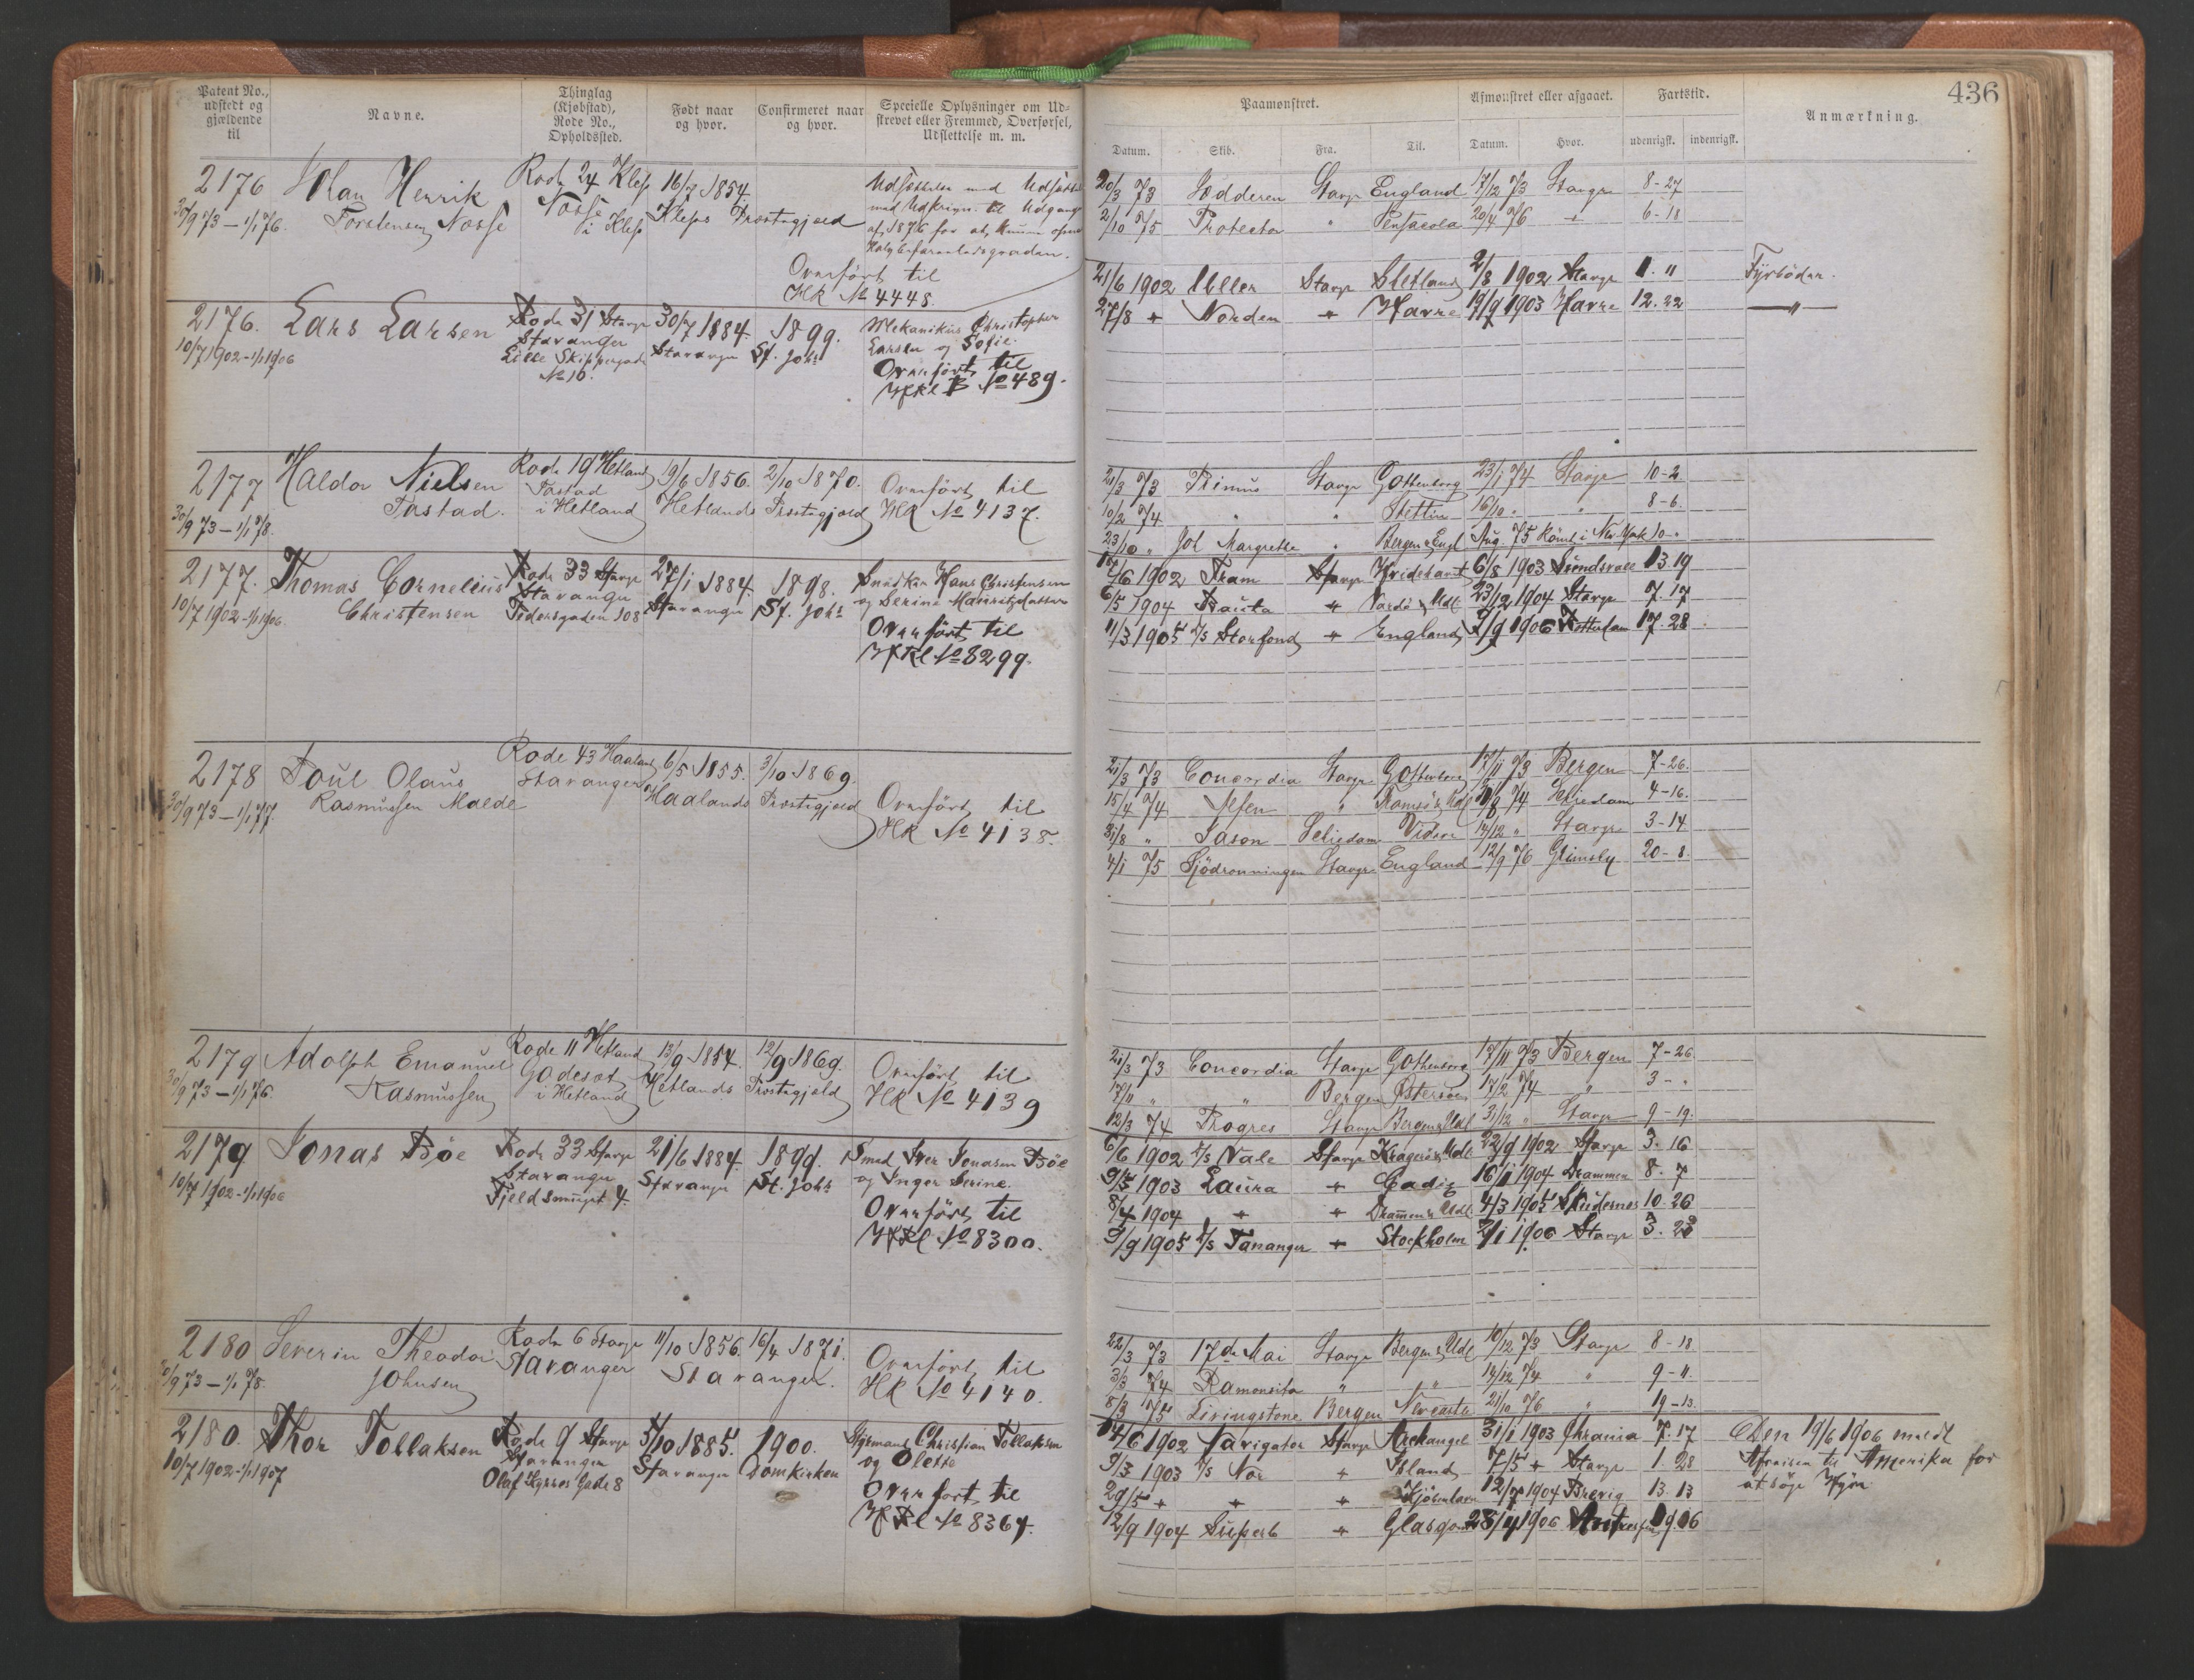 436
Patent No., udstedt og gjældende til
Navne.
Thinglag (Kjøbstad), Rode No., Opholdssted.
Født naar og hvor.
Confirmeret naar og hvor.
Specielle Oplysninger om Udskrevet eller Fremmed, Overførsel, Udslettelse m. m.
Paamønstret.
Datum. Skib. Fra. Til.
Afmønstret eller afgaaet.
Datum. Hvor.
Fartstid.
udenrigsk. indenrigsk.
Anmærkning.
2176 Johan Henrik Rode 24 Klep 16/7 1854.
30/9 73 – 1/1 76. Torstensen Nosse Nosse i Klep Kleps Præstegjæld
Overført til
HR No 4448.
20/3 73 Jædderen Stavgr England 17/12 73 Stavgr 8-27
2/10 75 Protector " Pensacola 20/4 76 " 6-18
2176. Lars Larsen Rode 31 Stavgr 30/7 1884. 1899. Mekanikus Christopher
10/7 1902-1/1 1906 Stavanger Stavanger St. Johs Larsen og Sofie.
Lille Skippergade No 10. Overført til
No 489.
21/6 1902 Stavgr Shetland 2/8 1902 Stavgr 1. " Fyrbøder.
27/8 " Norden " Havre 19/9 1903 Havre 12.22 — " —
2177 Haldor Nielsen Rode 19 Hetland 19/6 1856. 2/10 1870. Overført til
30/9 73 – 1/1 78. Tastad. Tastad i Hetland Hetlands Præstegjæld HR No 4137.
21/3 73 Primus Stavgr Gottenborg 23/1 74 Stavgr 10-2
10/2 74. " " Stettin 16/10 " " 8-6.
23/10 " Joh Margrethe " Bergen & Engl Aug. 75 Rømt i New York 10-"
2177. Thomas Cornelius Rode 33 Stavgr 27/1 1884. 1898. Hans Christensen
10/7 1902-1/1 1906. Christensen Stavanger Stavanger St. Johs og Serine
Pedersgaden 108 Overført til
No 8299.
6 1902 Fram Stavgr 6/8 1903 Sundsvall 13.19
6/5 1904 " Vardø & Udl 23/12 1904 Stavgr 7.17
11/3 1905 D/S Storfond " England 2/9 1906 Rotterdam 17.28
2178 Poul Olaus Rode 43 Haaland 6/5 1855. 3/10 1869.
30/9 73 – 1/1 77. Rasmussen Malde Stavanger Haalands Præstegjæld Overført til
HR No 4138.
21/3 73 Concordia Stavgr Gottenborg 17/11 73 Bergen 7-26.
15/4 74 " 74 4-16.
31/8 " Jason Schiedam Videre 14/12 " Stavgr 3-14
4/1 75 Sjødronningen Stavgr England 12/9 76 Grimsby 20-8.
2179 Adolph Emanuel Rode 11 Hetland 13/9 1854. 12/9 1869. Overført til
30/9 73 – 1/1 76. Rasmussen Godeset i Hetland Hetlands Præstegjæld HR No 4139
21/3 73 Concordia Stavgr Gothenborg 17/11 73 Bergen 7-26
17/11 " " Bergen Østersøen 17/2 74 " 3-"
12/3 74 Progres Stavgr Bergen & Udl 31/12 " Stavgr 9-19.
2179 Jonas Bøe Rode 33 Stavgr 21/6 1884. 1899. Smed Iver Jonasen Bøe
10/7 1902-1/1 1906 Stavanger Stavanger St. Johs og Inger Serine.
Fjeldsmuget 4. Overført til
No 8300.
6/6 1902 D/S Vale Stavgr Kragerø & Udl 22/9 1902 Stavgr 3.16
9/5 1903 Laura " Cadiz 16/1 1904 Drammen 8.7
8/4 1904 " " Drammen & Udl. 4/3 1905 Skudesnes 10.26
9/9 1905 D/S Tananger " Stockholm 2/1 1906 Stavgr 3.23
2180 Severin Theodor Rode 6 Stavgr 11/10 1856. 16/4 1871. Overført til
30/9 73 – 1/1 78. Johnsen Stavanger Stavanger. HR No 4140.
22/3 73 17de Mai Stavgr Bergen & Udl 10/12 73 Stavgr 8-18
3/3 74 Ramonsita " " 14/12 74 " 9-11.
8/3 75 Livingstone Bergen Newcastle 21/10 76 " 19-13.
2180. Thor Tollaksen Rode 9 Stavgr 5/10 1885. 1900. Styrmand Christian Tollaksen
10/7 1902-1/1 1907 Stavanger Stavanger Domkirken og Olette
Olaf Kyrres Gade 8 Overført til
No 8364.
14/6 1902 Navigator Stavgr Archangel 31/1 1903 Chrania 7.17 Den 19/6 1906 meldt
9/3 1903 D/S Nor " Island 7/5 " Stavgr 1.28 Afreisen til Amerika for
29/5 " " " Kjøbenhavn 12/7 1904 Brevig 13.13 at søge Hyre
12/9 1904 Superb " Glasgow 28/4 1906